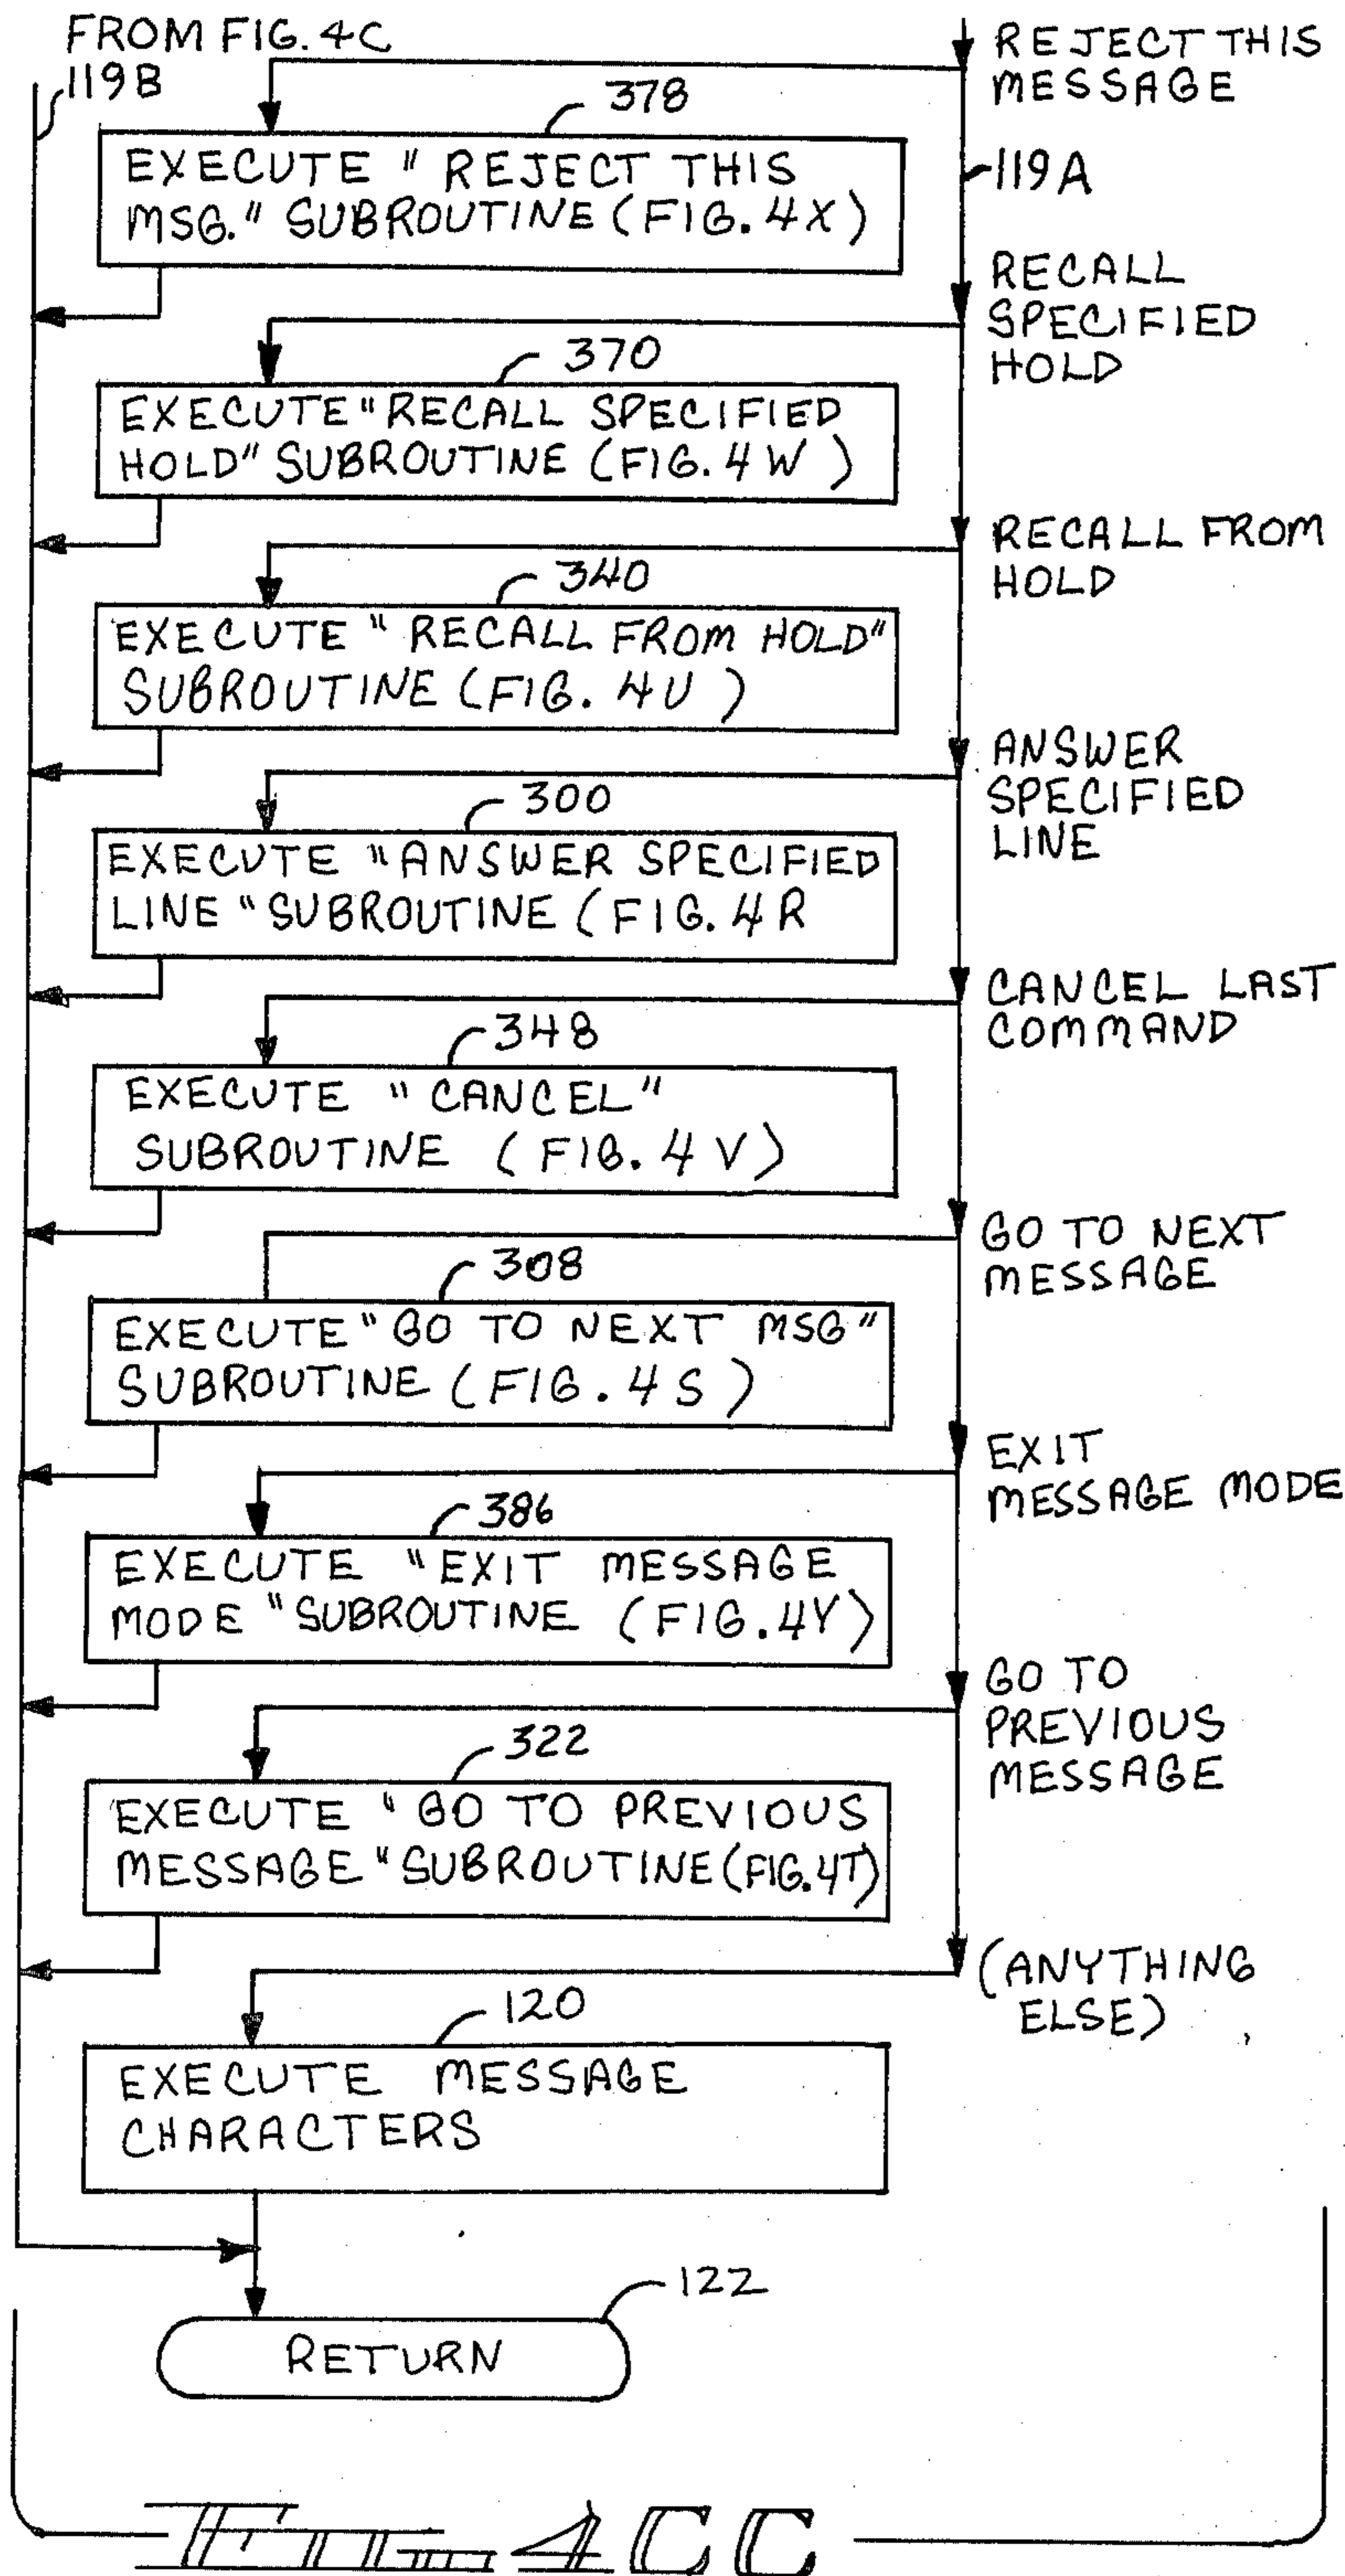 FROM FIG. 4C
119B
REJECT THIS
MESSAGE
378
EXECUTE " REJECT THIS
MSG." SUBROUTINE (FIG. 4X)
119A
RECALL
SPECIFIED
HOLD
370
EXECUTE "RECALL SPECIFIED
HOLD" SUBROUTINE (FIG. 4W)
RECALL FROM
HOLD
340
EXECUTE " RECALL FROM HOLD"
SUBROUTINE (FIG. 4U )
ANSWER
SPECIFIED
LINE
300
EXECUTE "ANSWER SPECIFIED
LINE "SUBROUTINE (FIG. 4R
CANCEL LAST
COMMAND
348
EXECUTE "CANCEL"
SUBROUTINE (FIG. 4V)
GO TO NEXT
MESSAGE
308
EXECUTE "GO TO NEXT MSG"
SUBROUTINE (FIG. 4S )
EXIT
MESSAGE MODE
386
EXECUTE "EXIT MESSAGE
MODE "SUBROUTINE (FIG. 4Y)
GO TO
PREVIOUS
MESSAGE
322
EXECUTE "GO TO PREVIOUS
MESSAGE "SUBROUTINE (FIG. 4T)
(ANYTHING
ELSE)
120
EXECUTE MESSAGE
CHARACTERS
122
RETURN
FIG. 4CC